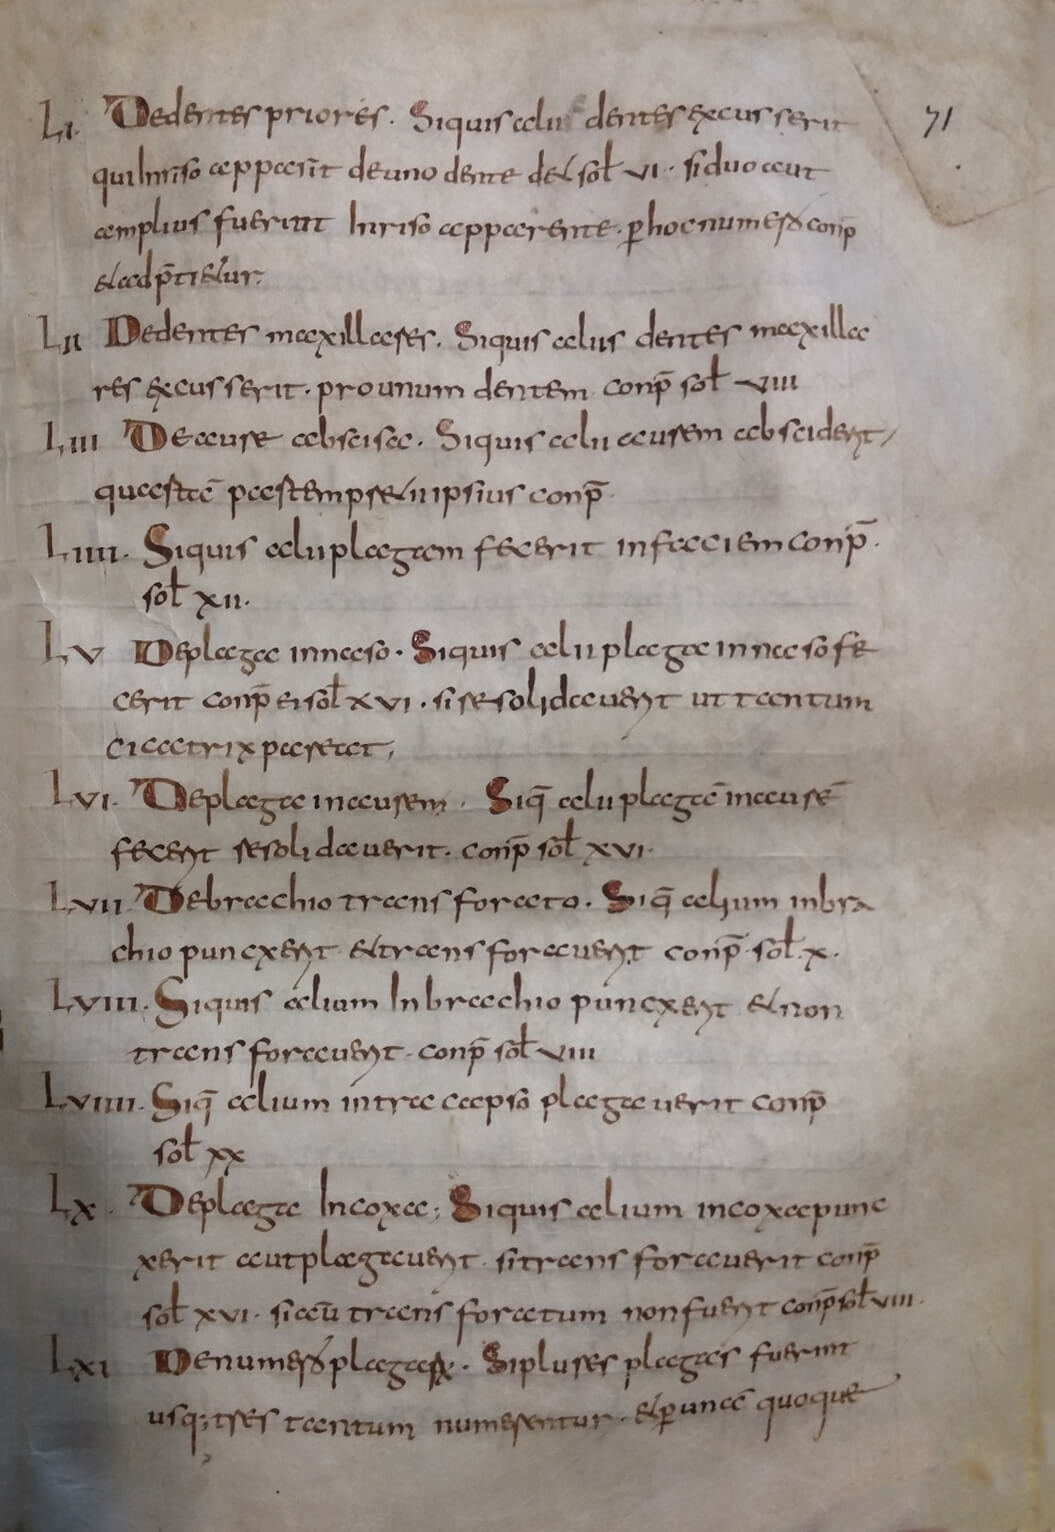 LI. De dentes priores. Siquis alii dentes excusserit
71
qui in riso apparit de uno dente det sol VI. si duo aut
amplius fuerint In riso apparente. p hoc numero conp̄
et adp̄tietur.
LII De dentes maxillares. Siquis alius dentes maxilla
res excusserit. pro unum dentem conp̄ sol VIII
LIII De aure abscisa. Siquis alii aurem absciderit
quartā partem pretii ipsius conp̄.
LIIII. Siquis alii plagam fecerit in faciem conp̄.
sol XII.
LV De plaga in naso. Siquis alii plaga in naso fe
cerit conp̄ ei sol XVI. si resolidaverit ut tantum
cicatrix pareat,
LVI. De plaga in aurem. Siq̄ alii plagā in aurē
fecerit resolidaverit. conp̄ sol XVI.
LVII. De brachio transforato. Siq̄ alium in bra
chio punxerit et transforaverit conp̄. sol. X.
LVIII. Siquis alium In brachio punxerit et non
transforaverit. conp̄ sol VIII
LVIIII. Siq̄ alium intra capso plagaverit conp̄
sol XX
LX. De plaga In coxa; Siquis alium in coxa punc
xerit aut plagaverit. si transforaverit conp̄
sol XVI. si aū transforatum non fuerit conp̄ sol VIII.
LXI De numero plagarum. Si plures plagas fuerint
usq; tres tantum numerentur. et p unā quoque